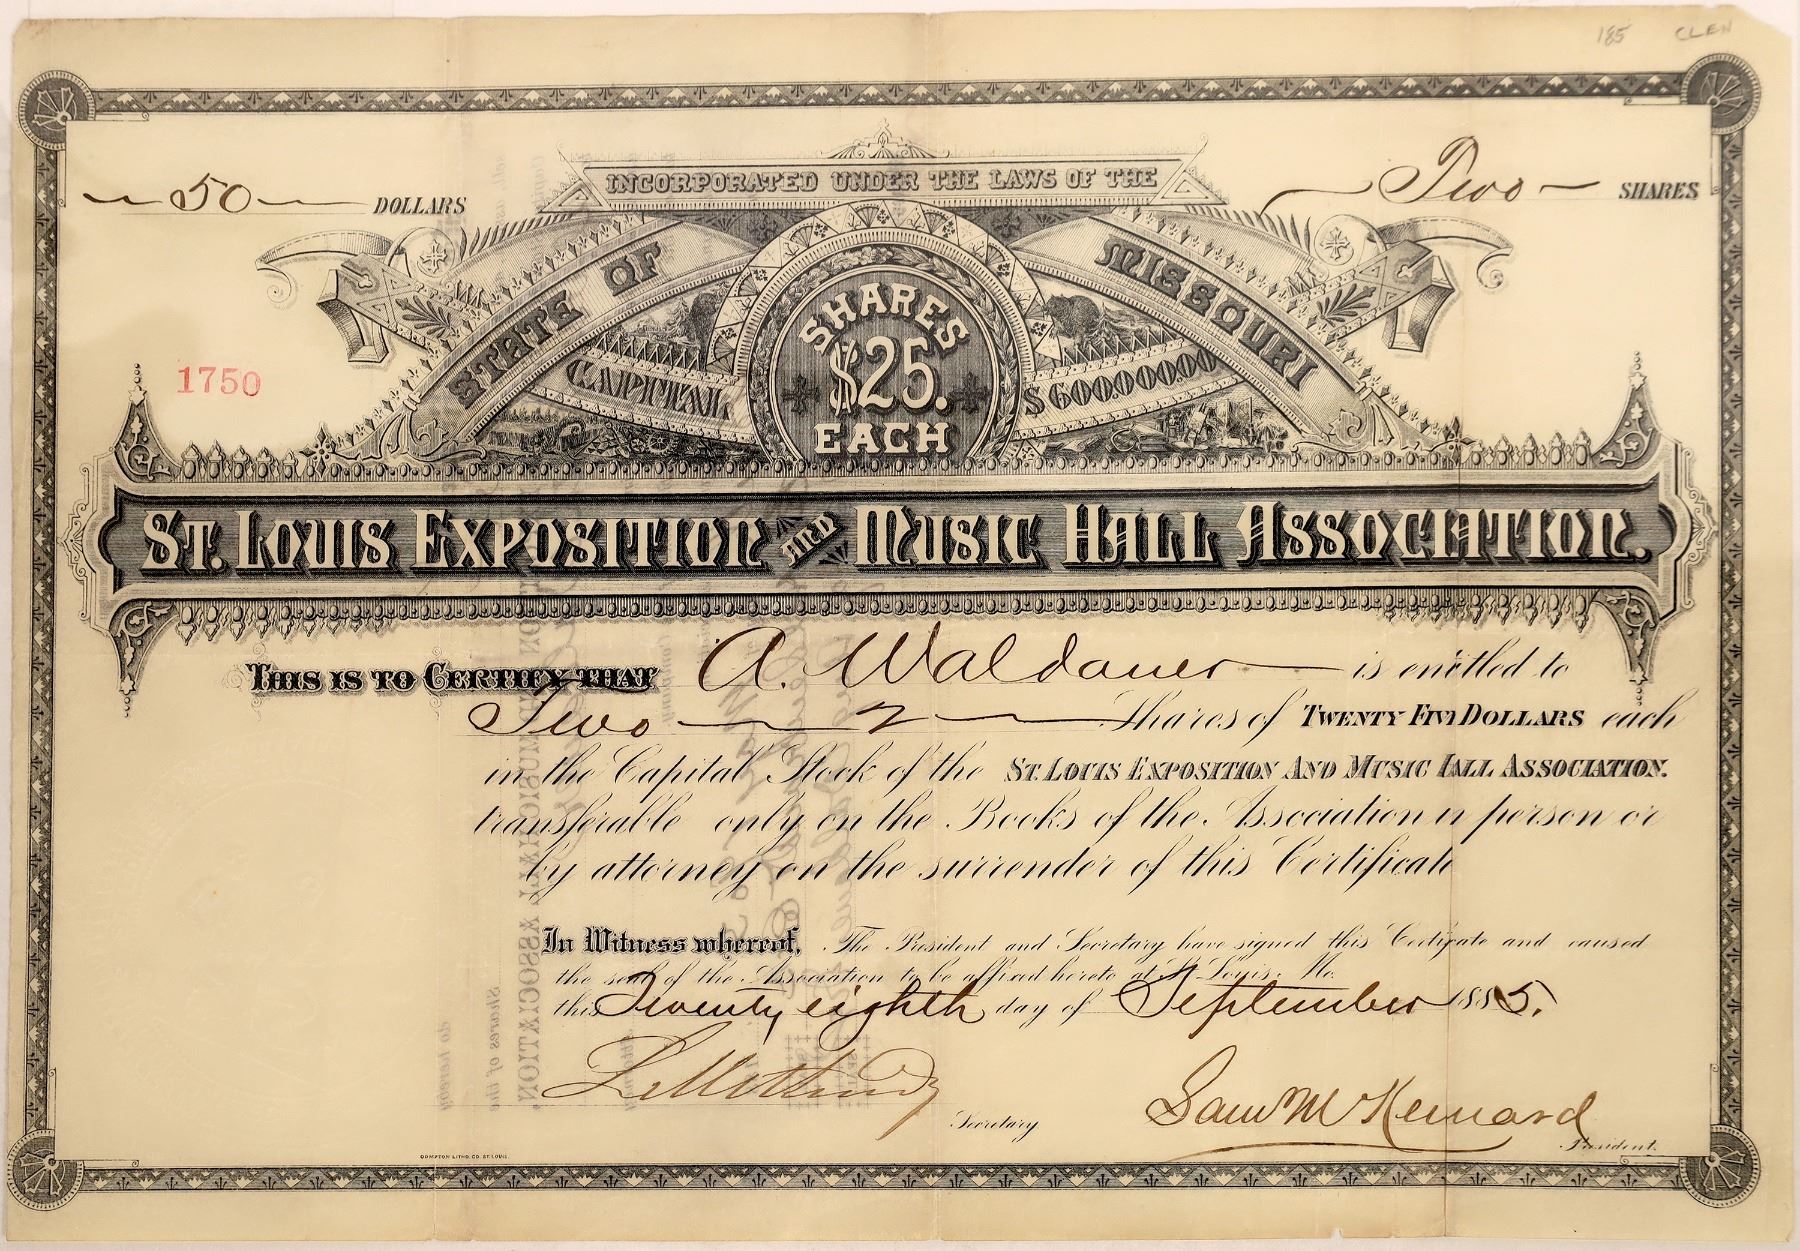 185 CLEN
INCORPORATED UNDER THE LAWS OF THE
50 DOLLARS
Two SHARES
STATE OF MISSOURI
1750
CAPITAL $600.000.00
SHARES
$25.
EACH
ST. LOUIS EXPOSITION AND MUSIC HALL ASSOCIATION.
THIS IS TO CERTIFY THAT A. Waldauer is entitled to
Two 2 Shares of TWENTY FIVE DOLLARS each
in the Capital Stock of the ST. LOUIS EXPOSITION AND MUSIC HALL ASSOCIATION.
transferable only on the Books of the Association in person or
by attorney on the surrender of this Certificate
In Witness whereof, The President and Secretary have signed this Certificate and caused
the seal of the Association to be affixed hereto at St. Louis, Mo.
this Twenty eighth day of September 1885.
Secretary
Sam M Kennard
President.
COMPTON LITHO. CO. ST. LOUIS.